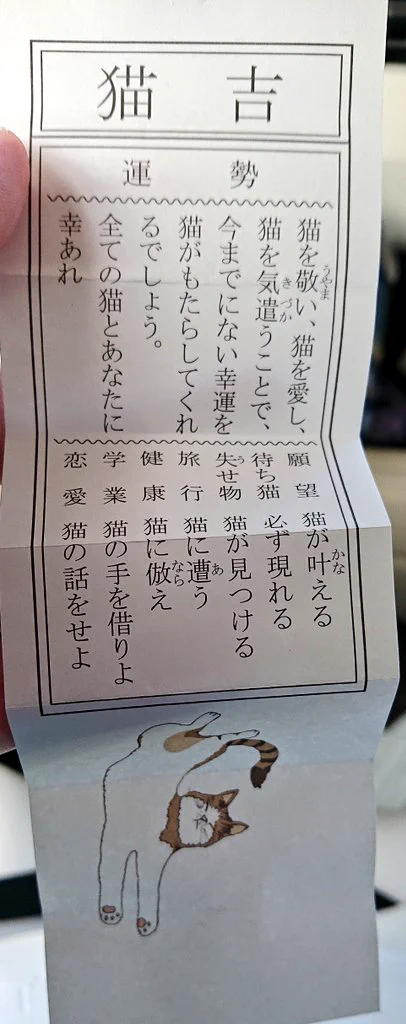 猫吉
運勢
猫を敬い、猫を愛し、
猫を気遣うことで、
今までにない幸運を
猫がもたらしてくれ
るでしょう。
全ての猫とあなたに
幸あれ
願望 猫が叶える
待ち猫 必ず現れる
失せ物 猫が見つける
旅行 猫に遭う
健康 猫に倣え
学業 猫の手を借りよ
恋愛 猫の話をせよ